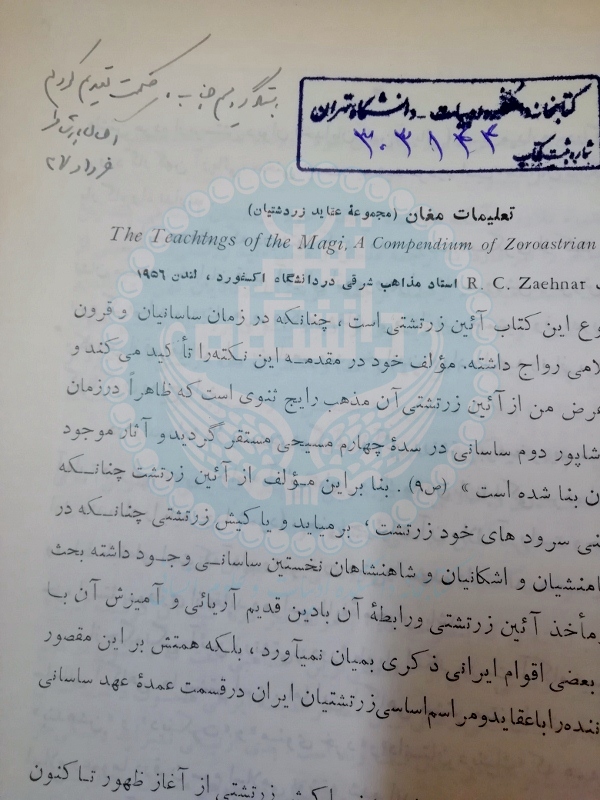 کتابخانه دانشکده ادبیات - دانشگاه تهران
شماره ثبت کتاب ۳۰۳۱۴۴
تقدیم
خرداد ۲۷
تعلیمات مغان (مجموعهٔ عقاید زردشتیان)
The Teachtngs of the Magi, A Compendium of Zoroastrian
R. C. Zaehnar استاد مذاهب شرقی در دانشگاه اکسفورد ، لندن ۱۹۵۶
وع این کتاب آئین زرتشتی است ، چنانکه در زمان ساسانیان و قرون
لامی رواج داشته. مؤلف خود در مقدمه این نکته‌را تأکید می‌کند و
رض من از آئین زرتشتی آن مذهب رایج ثنوی است که ظاهراً درزمان
شاپور دوم ساسانی در سدهٔ چهارم مسیحی مستقر گردید و آثار موجود
ن بنا شده است » (ص۹) . بنا براین مؤلف از آئین زرتشت چنانکه
نی سرود های خود زرتشت ، برمیاید و یا کیش زرتشتی چنانکه در
امنشیان و اشکانیان و شاهنشاهان نخستین ساسانی وجود داشته بحث
مأخذ آئین زرتشتی ورابطهٔ آن بادین قدیم آریائی و آمیزش آن با
بعضی اقوام ایرانی ذکری بمیان نمیآورد ، بلکه همتش بر این مقصور
ننده را باعقاید و مراسم اساسی زرتشتیان ایران درقسمت عمدهٔ عهد ساسانی
کیش زرتشتی از آغاز ظهور تاکنون